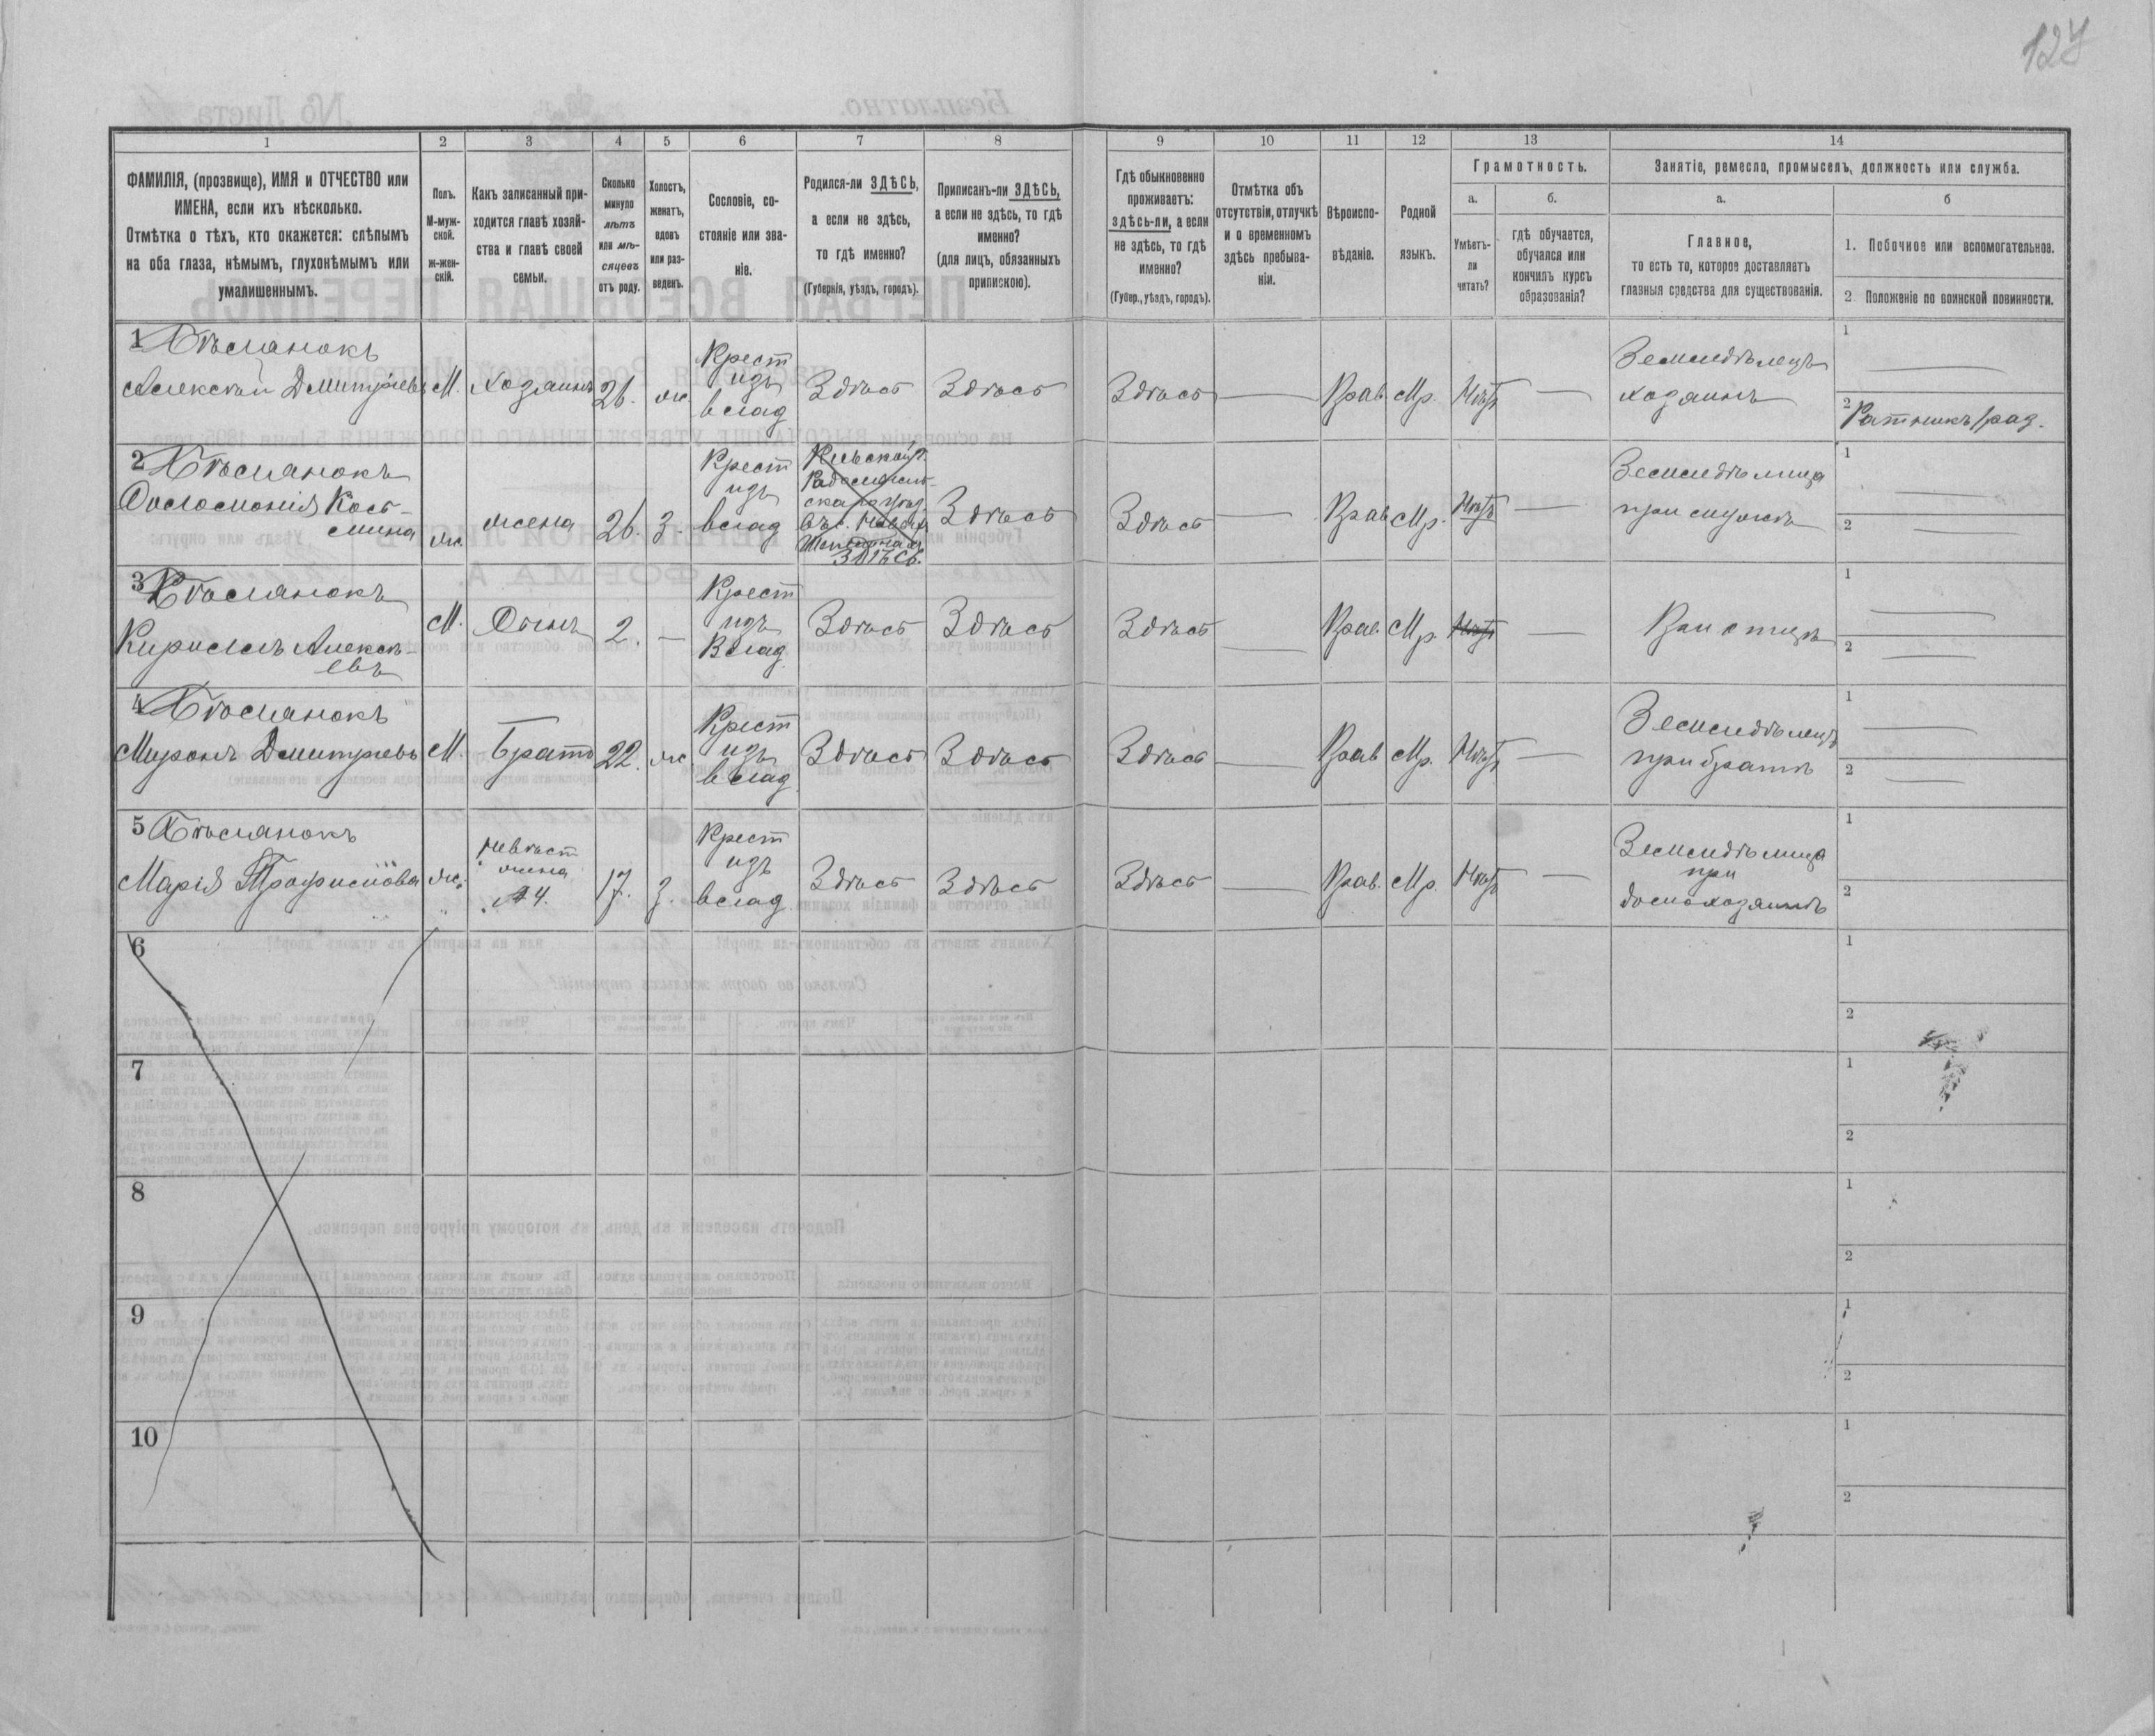 127
1
ФАМИЛІЯ, (прозвище), ИМЯ и ОТЧЕСТВО или
ИМЕНА, если ихъ нѣсколько.
Отмѣтка о тѣхъ, кто окажется: слѣпымъ
на оба глаза, нѣмымъ, глухонѣмымъ или
умалишеннымъ.
2
Полъ.
М-муж-
ской.
Ж-жен-
скій.
3
Какъ записанный при-
ходится главѣ хозяй-
ства и главѣ своей
семьи.
4
Сколько
минуло
лѣтъ
или мѣ-
сяцевъ
отъ роду.
5
Холостъ,
женатъ,
вдовъ
или раз-
веденъ.
6
Сословіе, со-
стояніе или зва-
ніе.
7
Родился-ли ЗДѢСЬ,
а если не здѣсь,
то гдѣ именно?
(Губернія, уѣздъ, городъ).
8
Приписанъ-ли ЗДѢСЬ,
а если не здѣсь, то гдѣ
именно?
(для лицъ, обязанныхъ
припискою).
9
Гдѣ обыкновенно
проживаетъ:
здѣсь-ли, а если
не здѣсь, то гдѣ
именно?
(Губер., уѣздъ, городъ).
10
Отмѣтка объ
отсутствіи, отлучкѣ
и о временномъ
здѣсь пребыва-
ніи.
11
Вѣроиспо-
вѣданіе.
12
Родной
языкъ.
13
Грамотность.
а.
Умѣетъ-
ли
читать?
б.
гдѣ обучается,
обучался или
кончилъ курсъ
образованія?
14
Занятіе, ремесло, промыселъ, должность или служба.
а.
Главное,
то есть то, которое доставляетъ
главныя средства для существованія.
б
1. Побочное или вспомогательное.
2 Положеніе по воинской повинности.
1 Хтосланокъ
Алексѣй Дмитріевъ М. хозяинъ 26. ж.
Крест
изъ
влад
Здѣсь Здѣсь Здѣсь — Прав. Мр. Нѣтъ —
Земледѣлецъ
хозяинъ
1
2 Ратникъ 1 раз.
2 Хтосланокъ
Соломонія Кось-
мина ж. жена 26. з.
Крест
изъ
влад
Кіевской г.
Радомысль-
скаго уѣзд.
ЗДѢСЬ.
Здѣсь Здѣсь — Прав. Мр. Нѣтъ
Земледѣлица
при мужѣ
1
2
3 Хтосланокъ
Кириллъ Алексѣ-
евъ
М. Сынъ 2. —
Крест
изъ
Влад.
Здѣсь Здѣсь Здѣсь — Прав. Мр. Нѣтъ —
При отцѣ
1
2
4 Хтосланокъ
Миронъ Дмитріевъ М. Братъ 22. ж.
Крест
изъ
влад
Здѣсь Здѣсь Здѣсь — Прав Мр. Нѣтъ —
Земледѣлецъ
при братѣ
1
2
5 Хтосланокъ
Марія Трофимова ж.
Невѣст
жена
№ 4.
17. з.
Крест
изъ
влад.
Здѣсь Здѣсь Здѣсь — Прав. Мр. Нѣтъ —
Земледѣлица
при
домохозяинѣ
1
2
6
1
2
7
1
2
8
1
2
9
1
2
10
1
2